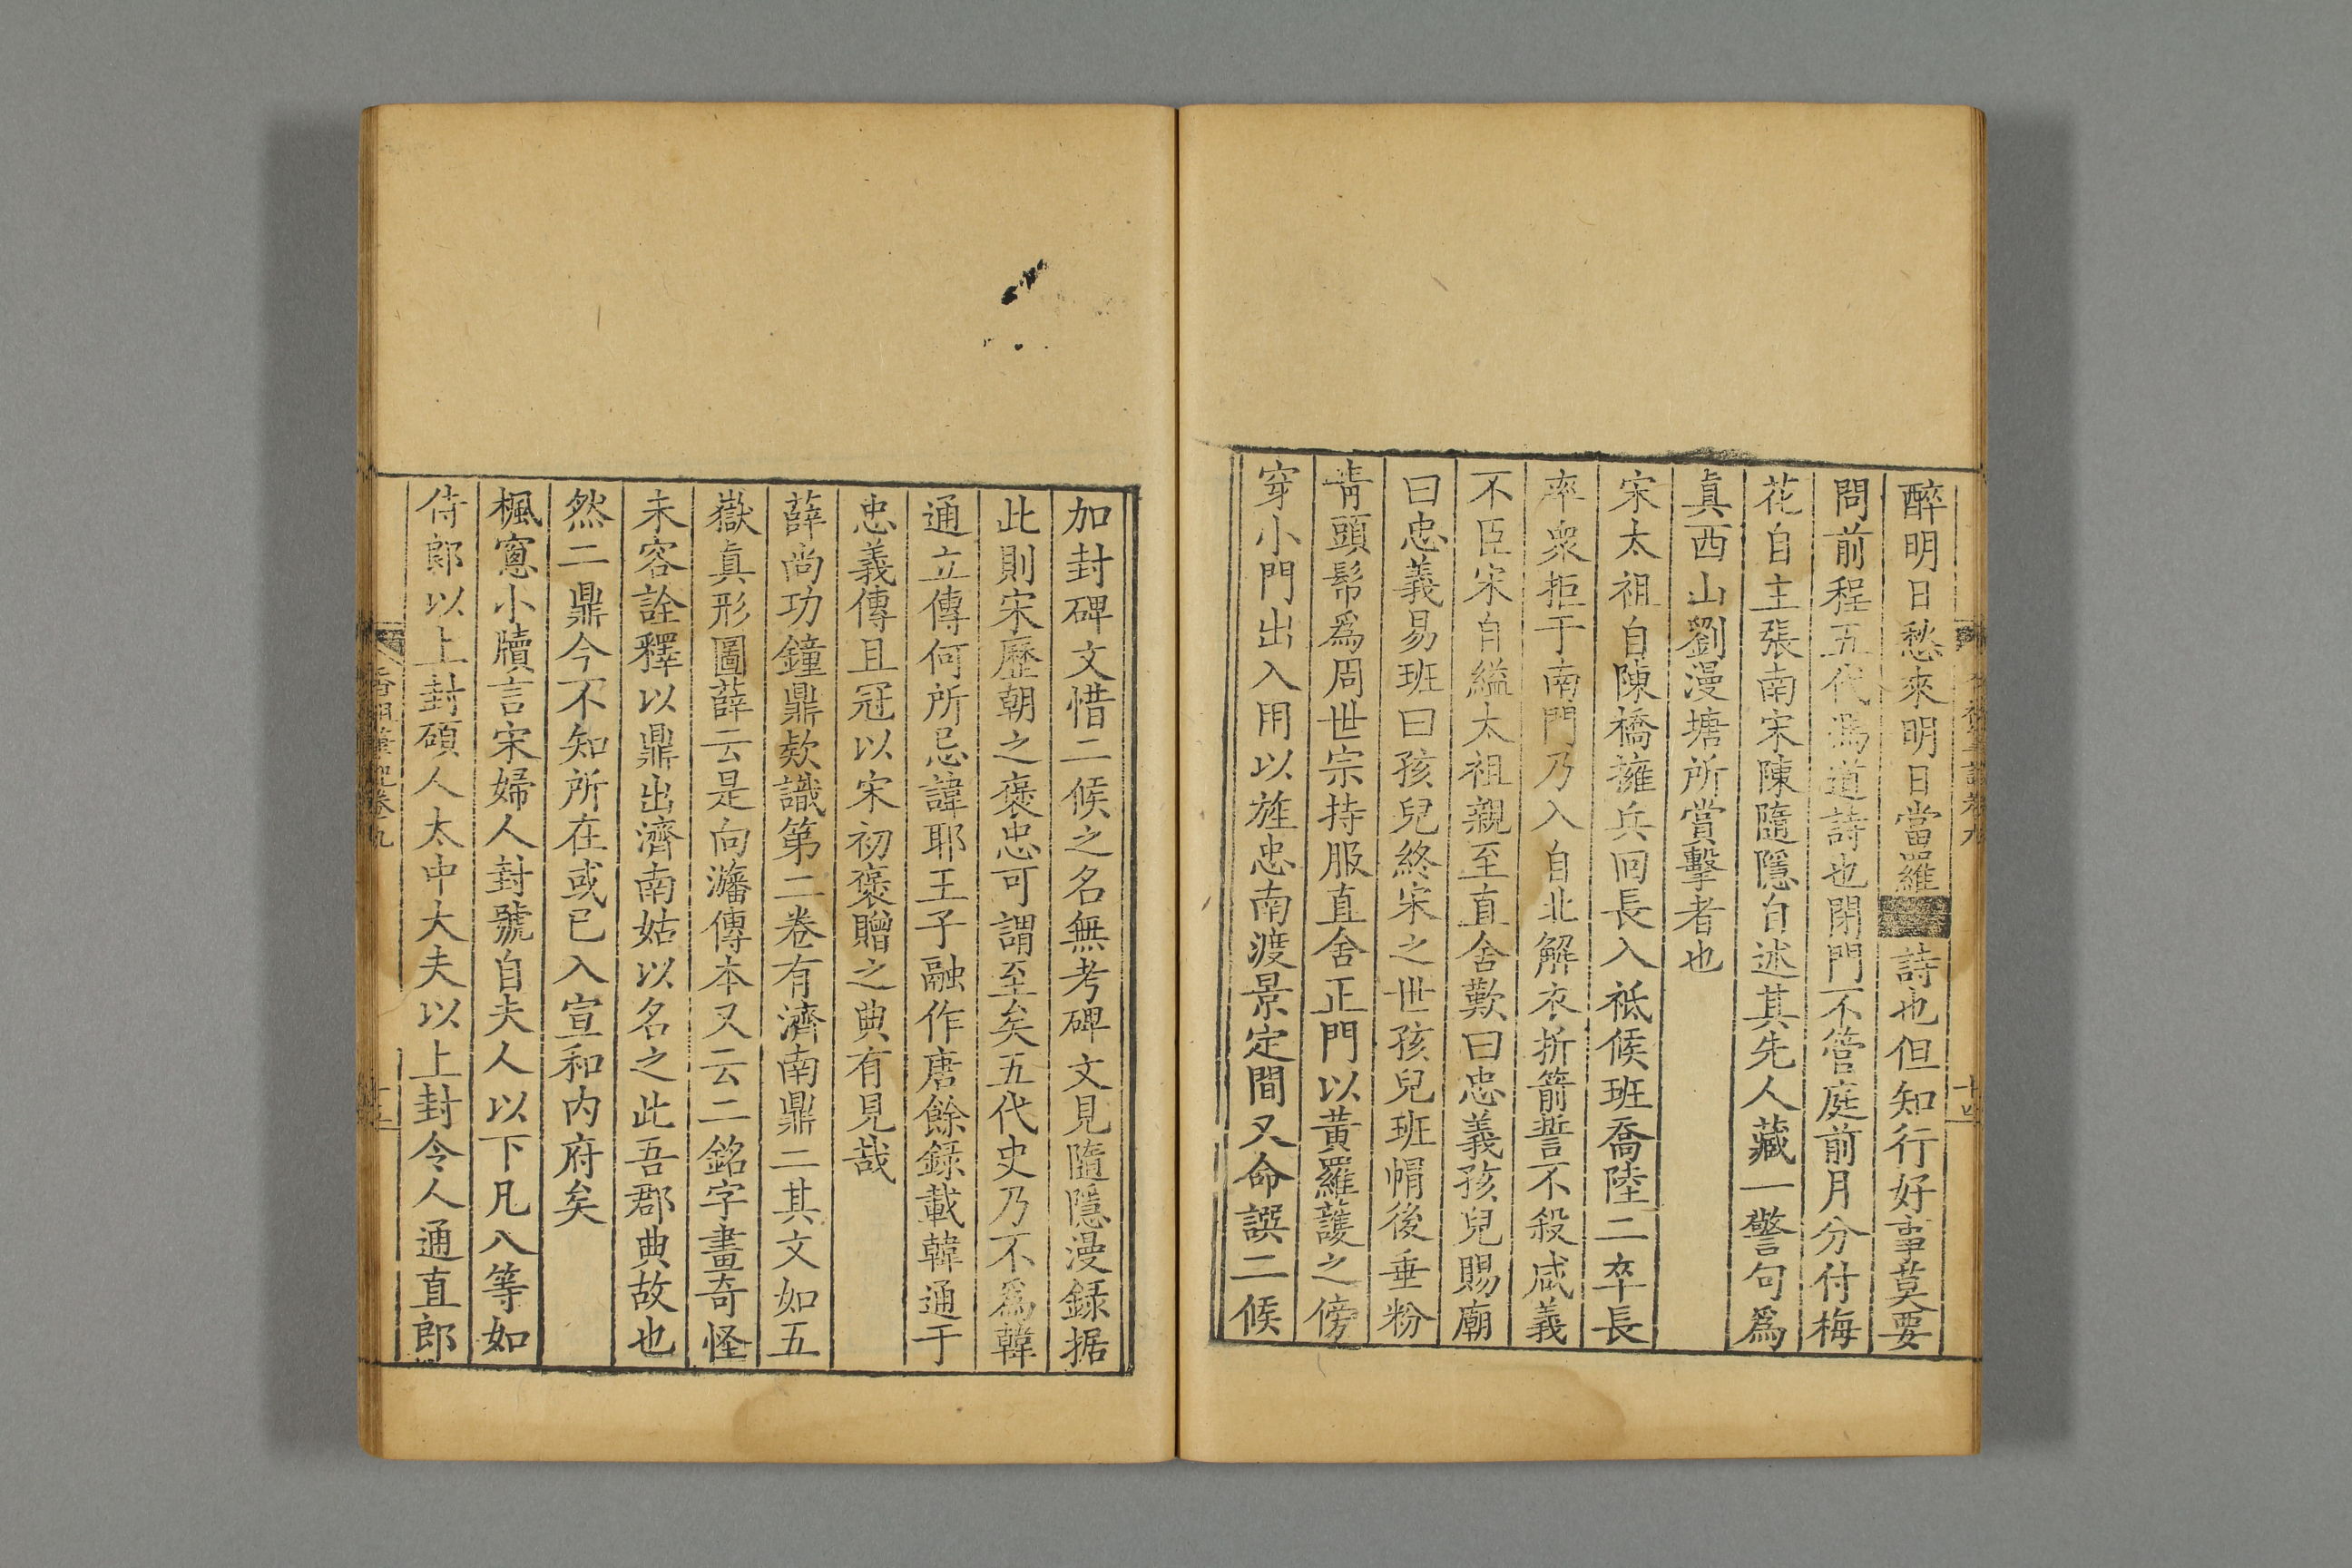 醉明日愁來明日當羅詩也但知行好事莫要
問前程五代馮道詩也閉門不管庭前月分付梅
花自主張南宋陳隨隱自述其先人藏一警句爲
真西山劉漫塘所賞擊者也
宋太祖自陳橋擁兵回長入祗候班喬陸二卒長
率衆拒于南門乃入自北解衣折箭誓不殺咸義
不臣宋自縊太祖親至直舍歎曰忠義孩兒賜廟
曰忠義易班曰孩兒終宋之世孩兒班帽後垂粉
靑頭帣爲周世宗持服直舍正門以黃羅護之傍
穿小門出入用以旌忠南渡景定間又命譔二候
加封碑文惜二候之名無考碑文見隨隱漫錄据
此則宋歷朝之褒忠可謂至矣五代史乃不爲韓
通立傳何所忌諱耶王子融作唐餘錄載韓通于
忠義傳且冠以宋初褒贈之典有見哉
薛尚功鐘鼎欵識第二卷有濟南鼎二其文如五
嶽真形圖薛云是向瀋傳本又云二銘字畫奇怪
未容詮釋以鼎出濟南姑以名之此吾郡典故也
然二鼎今不知所在或已入宣和内府矣
楓窻小牘言宋婦人封號自夫人以下凡八等如
侍郎以上封碩人太中大夫以上封令人通直郎
香祖筆記卷九